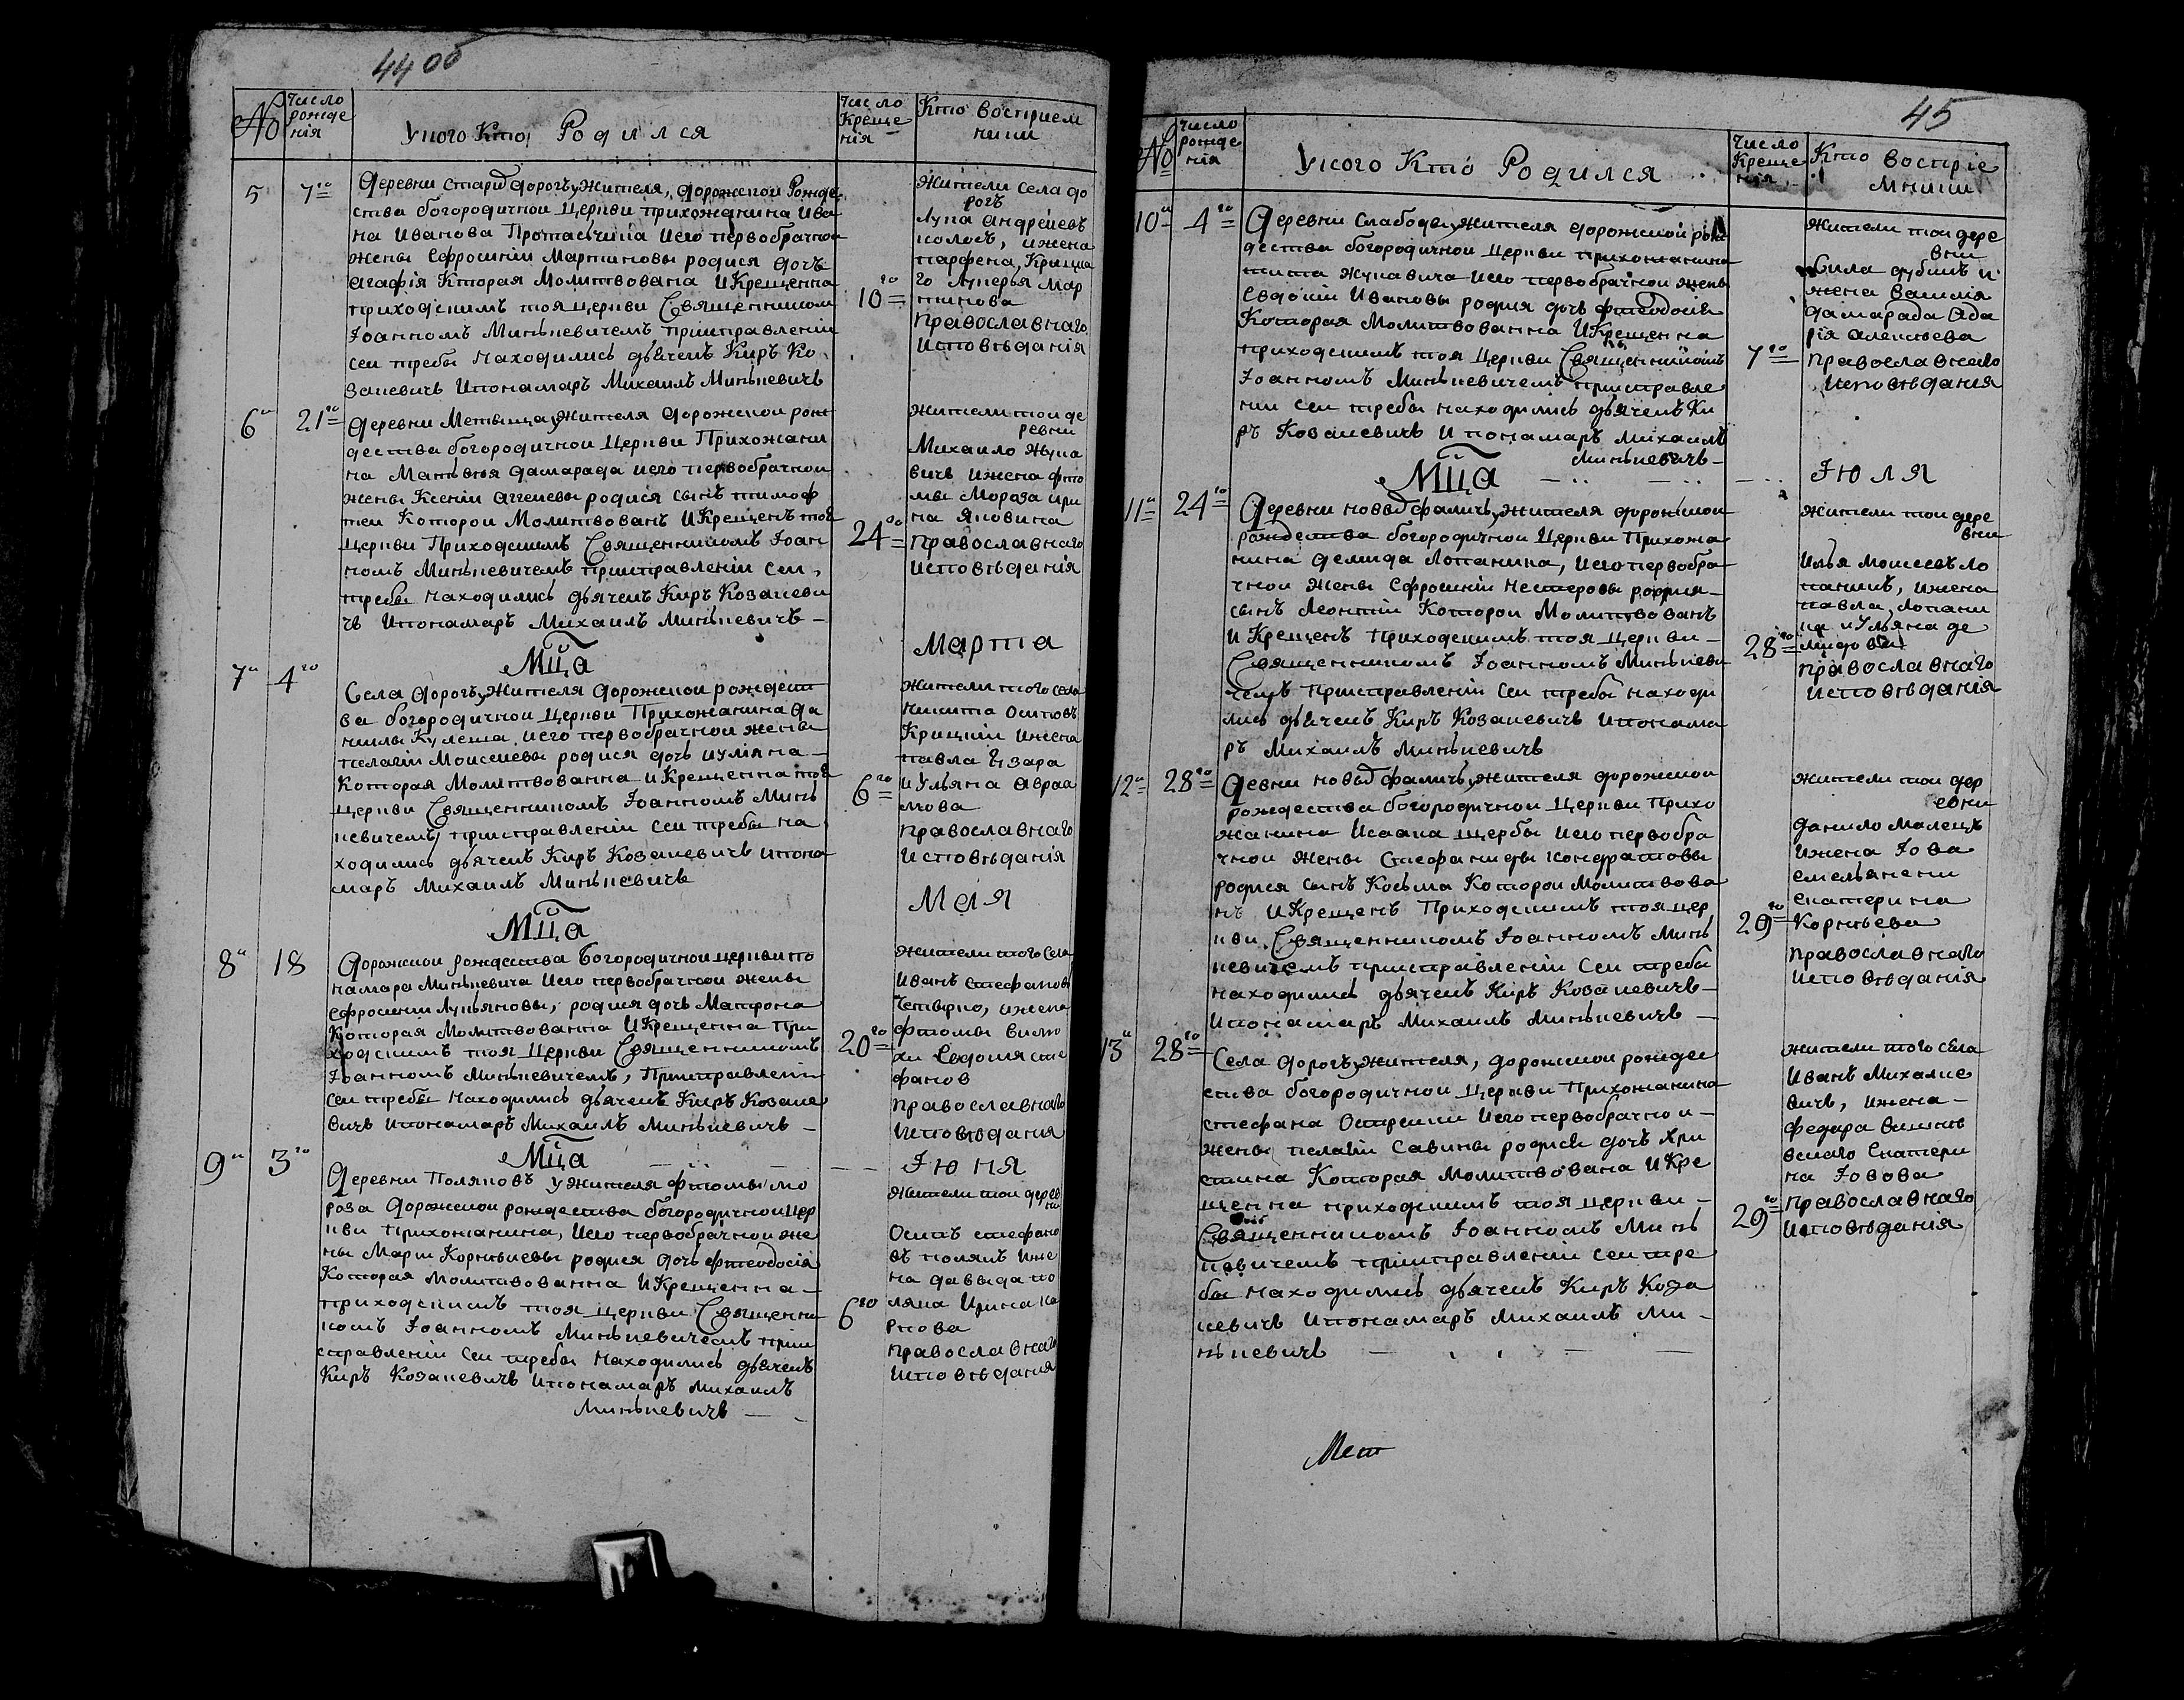 44 об
№
Число рожденія
У кого Кто Родился
Число Крещенія
Кто восприемники
5
7го
Деревни Старыд дорогъ, Жителя, дорожской Рожде
ства богородичнои Церкви прихожанина Ива
на Иванова Протасчица иего первобрачнои
жены Ефросиніи Мартиновы родися дочъ
агафія Кторая Молитвована и Крещенна
приходскимъ тоя церкви Священником
Іоанномъ Минкевичемъ при исправленіи
сеи требы находились дьячекъ Киръ Ко
зацевичъ и Понамаръ Михаилъ Минкевичъ
10го
Жители села до
рогъ
Лупа андреевъ
колосъ, и жена
парфена, Крица
го Лукерья Мар
тинова
православнаго
исповѣданія
6а
21го
деревни Метявица, Жителя дорожской рож
дества богородичнои Церкви Прихожани
на Матвѣя дамарада иего первобрачнои
жены Ксеніи аггеевы родися сынъ тимоф
теи Которои Молитвованъ и Крещенъ тоя
церкви Приходскимъ Священникомъ Іоан
номъ Минкевичемъ при исправленіи сеи
требы находились дьячекъ Киръ Козацеви
чъ и Понамаръ Михаилъ Минкевичъ —
24го
Жители тои де
ревни
Михаило Жука
вичъ и жена фто
мы Мороза Ири
на Яковина
православнаго
исповѣданія
Мца
Марта
7а
4го
Села дорогъ, Жителя дорожскои рождест
ва богородичнои Церкви Прихожанина да
нилы Кулеша, иего первобрачнои жены
пелагіи Моисеевы родися дочъ иуліяна —
Которая Молитвованна и Крещенна тоя
Церкви Священникомъ Іоанномъ Мин
кевичемъ, при исправленіи сеи требы на
ходились дьячекъ Киръ Козацевичъ и пона
маръ Михаилъ Минкевичъ
6го
Жители того села
Никита Осиповъ
Крицкіи и жена
павла
и Ульяна Авраа
мова
православнаго
исповѣданія
Мца
Маія
8а
18
дорожскои рождества Богородичнои церкви по
намара Минкевича иего первобрачнои жены
ефросинии Лукьяновы, родися дочъ Матрона
Которая Молитвованна и Крещенна при
ходскимъ тоя Церкви Священникомъ
Іоанномъ Минкевичемъ, При исправленіи
сеи требы находились дьячекъ Киръ Козаце
вичъ и понамаръ Михаилъ Минкевичъ —
20го
Жители того села
Иванъ стефановъ
, и жена
фтомы
Евдокия сте
фанов
православнаго
исповѣданія
Мца
Іюня
9а
3го
деревни Поляковъ у жителя фтомы мо
роза дорожскои рождества богородичнои цер
кви прихожанина, иего первобрачнои же
ны Марии Корнѣевы родися дочъ фтеодосія
Которая Молитвованна и Крещенна —
приходскимъ тоя церкви Священни
комъ Іоанномъ Минкевичемъ при и
справленіи сеи требы находились дьячекъ
Киръ Козацевичъ и понамаръ Михаилъ
Минкевичъ —
6го
Жители тои дерев
ни
Осипъ стефано
въ полякъ и же
на давыда по
ляка Ирина Ка
рпова
православнаго
исповѣданія
45
№
Число рожденія
У кого Кто Родился
Число Крещенія
Кто восприе
мники
10а
4го
деревни Слабоды, Жителя дорожскои рож
дества богородичнои Церкви прихожанина
Жукавича иего первобрачнои жены
Евдокіи Ивановы родися дочъ фтеодосія
Которая Молитвованна и Крещенна
приходскимъ тоя Церкви Священникомъ
Іоанномъ Минкевичемъ при исправле
нии сеи требы находились дьячекъ Ки
ръ Козацевичъ и понамаръ Михаилъ
Минкевичъ —
7го
Жители тои дере
вни
дубикъ и
жена Василія
дамарада Да
рія Алексѣева
православнаго
исповѣданія
Мца
Іюля
11а
24го
деревни новыд фаличъ, Жителя дорожскои
рождества богородичнои Церкви Прихожа
нина демида Лопачика, иего первобра
чнои Жены Ефросиніи Нестеровы родися
сынъ Леонтіи Которои Молитвованъ
и Крещенъ приходскимъ тоя церкви —
Священникомъ Іоанномъ Минкеви
чемъ при исправленіи сеи требы находи
лись дьячекъ Киръ Козацевичъ и понама
ръ Михаилъ Минкевичъ
28го
Жители тои дере
вни
Илья Моисеевъ Ло
пачикъ, и жена
павла, Лопачи
ка иУльяна де
мидова
православнаго
исповѣданія
12а
28го
девни новыд фаличъ, жителя дорожскои
рождества богородичнои Церкви Прихо
жанина Исаака щербы иего первобра
чнои жены Стефаниды Кондратовы
родися сынъ Косьма Которои Молитвова
нъ и Крещенъ Приходскимъ тоя цер
кви, Священникомъ Іоанномъ Мин
кевичемъ при исправленіи сеи требы
находились дьячекъ Киръ Козацевичъ —
и понамаръ Михаилъ Минкевичъ —
29го
Жители тои дер
евни
данило Малецъ
и жена Іова
емельянени
екатерина
Корнѣева
православнаго
исповѣданія
13а
28го
Села дорогъ, жителя, дорожскои рождес
ства богородичнои Церкви Прихожанина
стефана Остреики иего первобрачнои —
жены пелагіи Савины родися дочъ хри
стина Которая Молитвована и Кре
щенна приходскимъ тоя церкви —
Священникомъ Іоанномъ Мин
кевичемъ при исправленіи сеи тре
бы находились дьячекъ Киръ Коза
цевичъ и понамаръ Михаилъ Ми —
нкевичъ —
29го
жители того села
Иванъ Михалке
вичъ, и жена —
федора вишнев
скаго Екатери
на Іовова
православнаго
исповѣданія